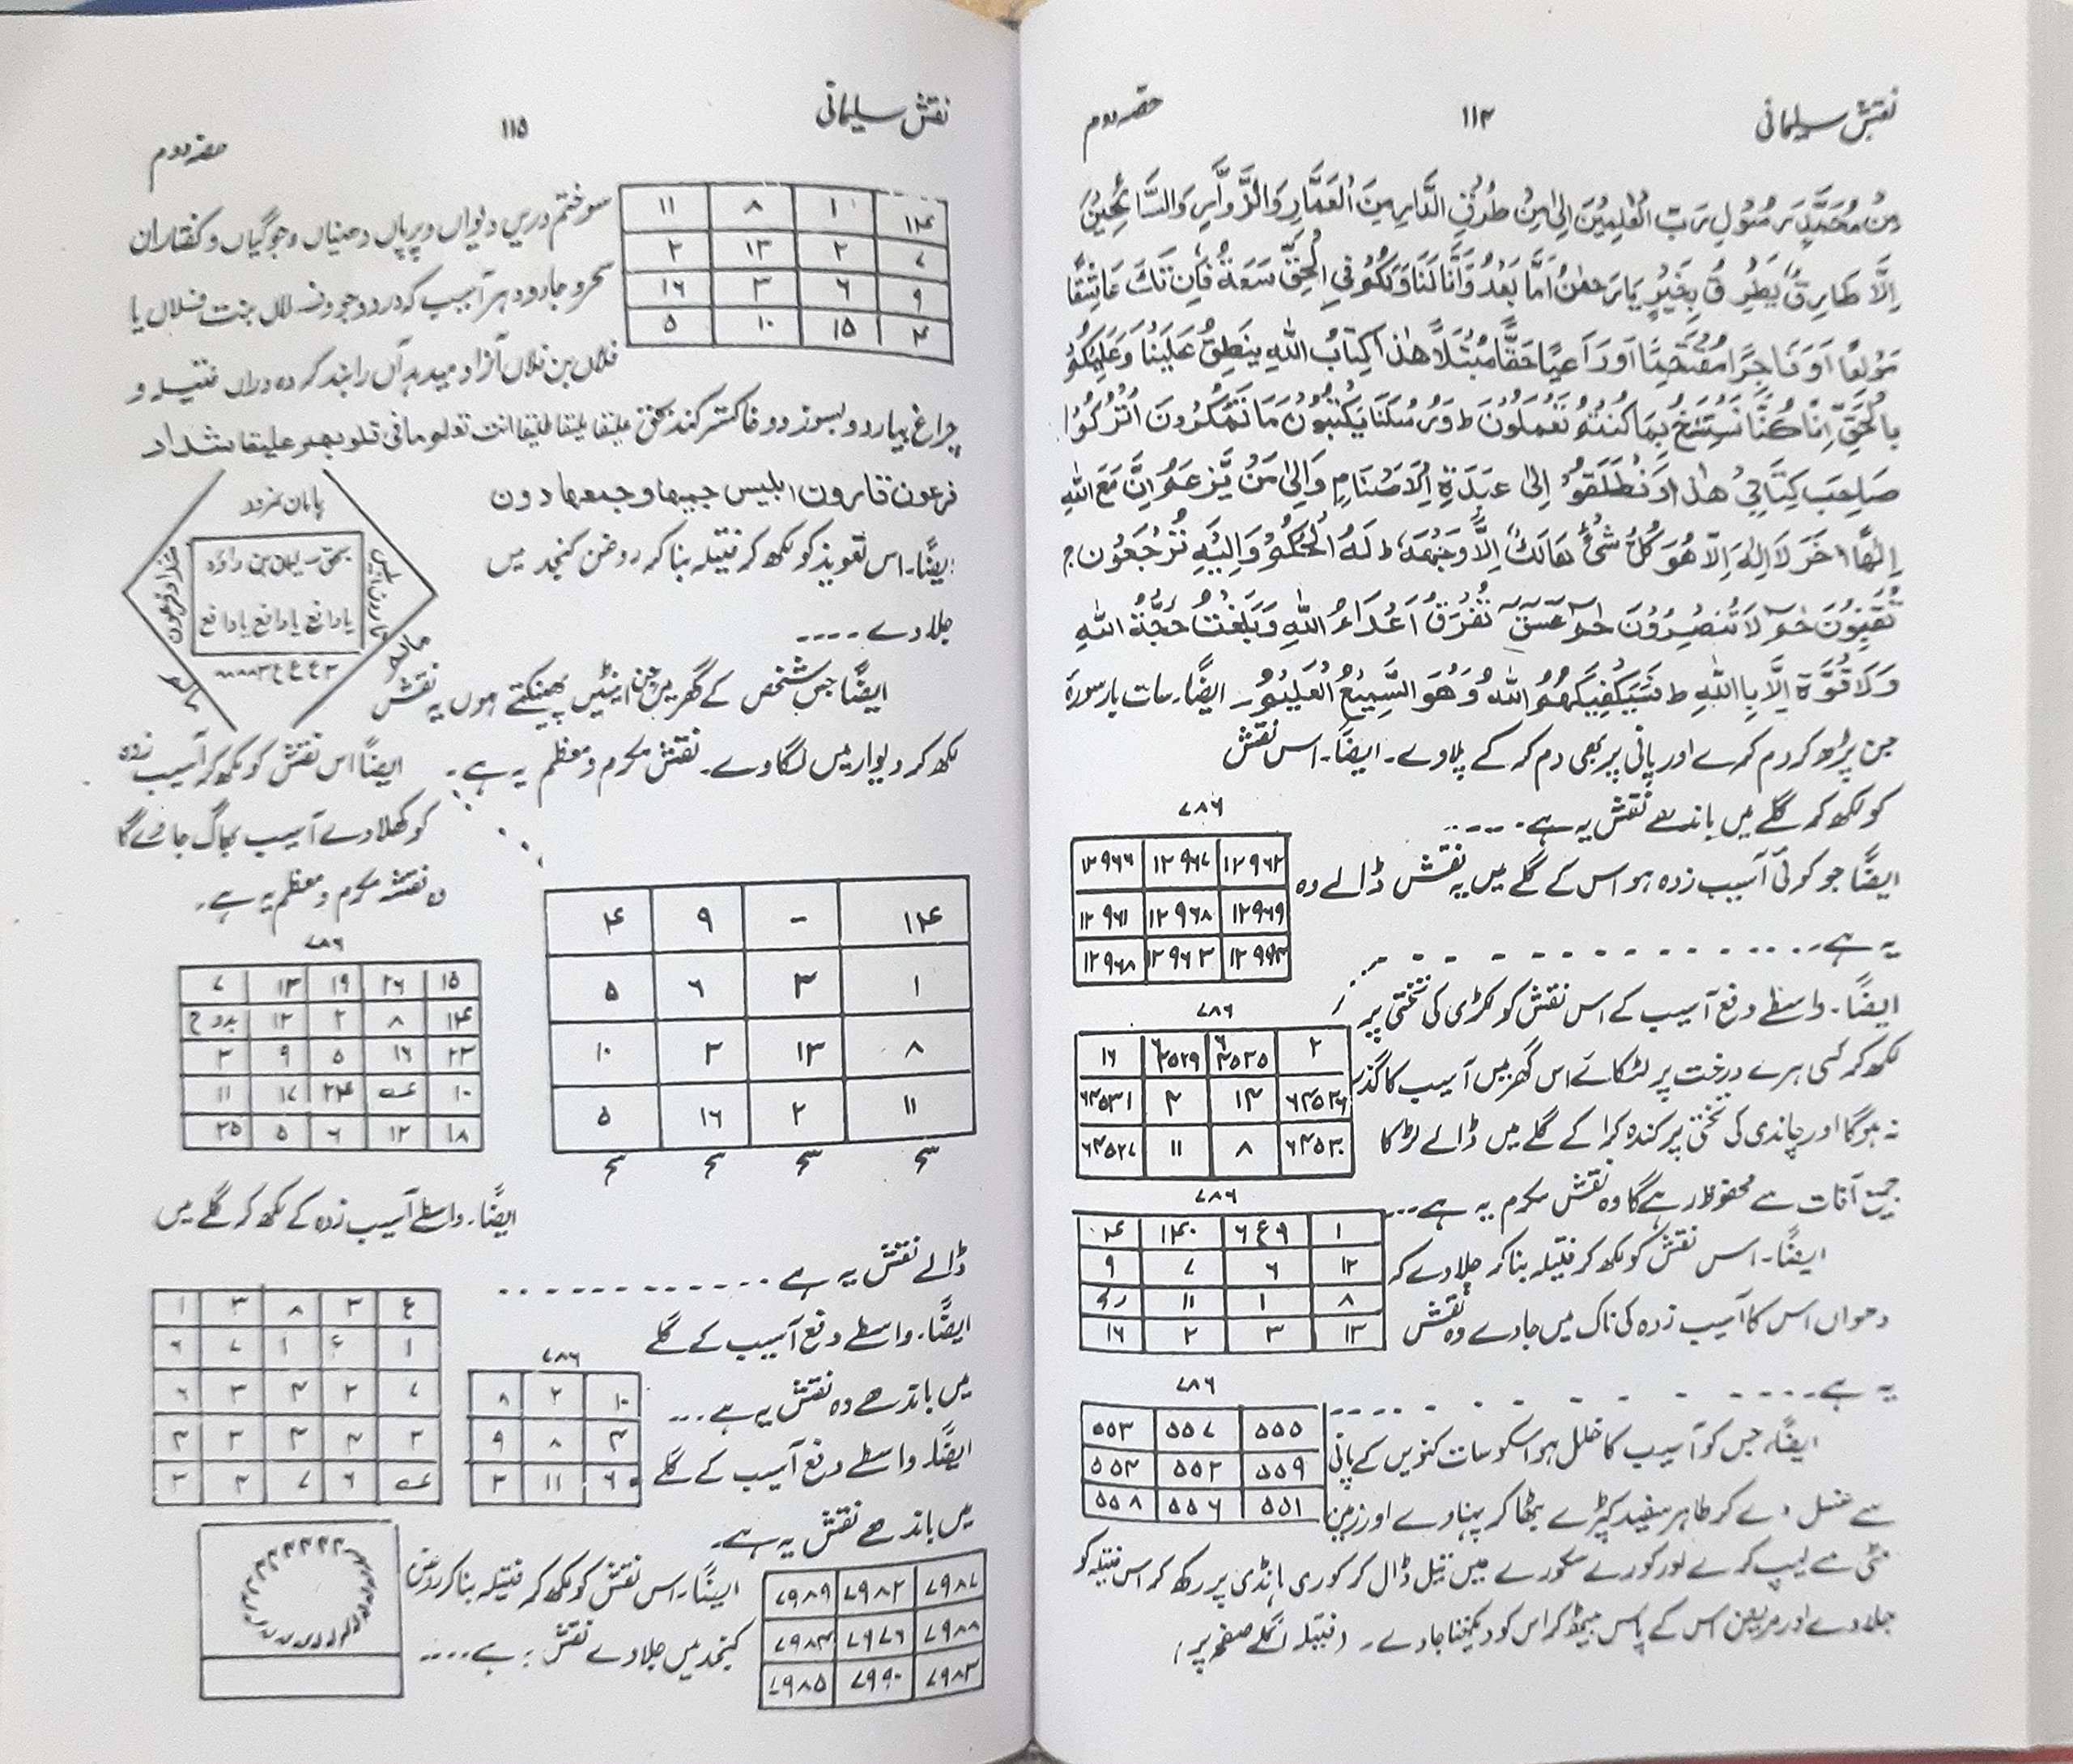 نقش سلیمانی ۱۱۴ حصہ دوم
مِنْ مُحَمَّدٍ رَسُوْلِ رَبِّ الْعٰلَمِیْنَ اِلٰی مِنْ طُرُقِ الدَّارِ مِنَ الْعَمَّارِ وَالزَّوَّارِ وَالسَّائِحِیْنَ
اِلَّا طَارِقٌ یَّطْرُقُ بِخَیْرٍ یَا رَحْمٰنُ اَمَّا بَعْدُ وَاَنَا لَنَا وَلَکُمْ فِی الْحَقِّ سَعَةً فَاِنْ تَكَ عَاشِقًا
مَوْلَعًا اَوْ فَاجِرًا مُقْتَحِمًا اَوْ رَاعِیًا حَقًّا مُبْتَلًا هٰذَا کِتَابُ اللهِ یَنْطِقُ عَلَیْنَا وَعَلَیْکُمْ
بِالْحَقِّ اِنَّا کُنَّا نَسْتَنْسِخُ بِمَا کُنْتُمْ تَعْمَلُوْنَ ط وَرُسُلُنَا یَکْتُبُوْنَ مَا تَمْکُرُوْنَ اُتْرُکُوْا
صَاحِبَ کِتَابِیْ هٰذَا وَنْطَلِقُوْ اِلٰی عَبَدَةِ الْاَصْنَامِ وَاِلٰی مَنْ یَّزْعَمُ اَنَّ مَعَ اللهِ
اِلٰهًا اٰخَرَ لَا اِلٰهَ اِلَّا هُوَ کُلُّ شَیْءٍ هَالِكٌ اِلَّا وَجْهَهٗ ط لَهُ الْحُکْمُ وَاِلَیْهِ تُرْجَعُوْنَ ج
حٰمٓ لَا تُنْصَرُوْنَ حٰمٓ عٓسٓقٓ تُفَرِّقُ اَعْدَاءُ اللهِ وَبَلَغَتْ حُجَّةُ اللهِ
وَلَا قُوَّةَ اِلَّا بِاللهِ ط فَسَیَکْفِیْکَهُمُ اللهُ وَهُوَ السَّمِیْعُ الْعَلِیْمُ۔ ایضًا۔ سات بار سورۃ
جن پڑھ کر دم کرے اور پانی پر بھی دم کر کے پلاوے۔ ایضًا۔ اس نقش
کو لکھ کر گلے میں باندھے نقش یہ ہے۔
۷۸۶
۱۲۹۶۶ ۱۲۹۶۷ ۱۲۹۶۲
۱۲۹۶۱ ۱۲۹۶۸ ۱۲۹۶۹
۱۲۹۶۸ ۱۲۹۶۳
ایضًا جو کوئی آسیب زدہ ہو اس کے گلے میں یہ نقش ڈالے وہ
یہ ہے۔
ایضًا۔ واسطے دفع آسیب کے اس نقش کو لکڑی کی تختی پر
لکھ کر کسی ہرے درخت پر لٹکائے اس گھر میں آسیب کا گذر
نہ ہوگا اور چاندی کی تختی پر کندہ کرا کے گلے میں ڈالے لڑکا
جمیع آفات سے محفوظ رہے گا وہ نقش مکرم یہ ہے۔
۷۸۶
۱۶ ۲
۶۴۵۳۱ ۴ ۱۴ ۶۴۵۲۶
۶۴۵۲۷ ۱۱ ۸ ۶۴۵۳۰
ایضًا۔ اس نقش کو لکھ کر فتیلہ بنا کر جلاوے کہ
دھواں اس کا آسیب زدہ کی ناک میں جاوے وہ نقش
یہ ہے۔
۷۸۶
۱۴۰ ۱
۹ ۷ ۶ ۱۲
۱۱ ۱ ۸
۱۶ ۲ ۳ ۱۳
ایضًا، جس کو آسیب کا خلل ہو اسکو سات کنویں کے پانی
۷۸۶
۵۵۳ ۵۵۷ ۵۵۵
۵۵۴ ۵۵۲ ۵۵۹
۵۵۸ ۵۵۶ ۵۵۱
سے غسل دے کر طاہر سفید کپڑے بٹھا کر پہناوے اور زمین
مٹی سے لیپ کرے اور کورے سکورے میں تیل ڈال کر کوری ہانڈی پر رکھ کر اس فتیلہ کو
جلاوے اور مریض اس کے پاس بیٹھ کر اس کو دیکھتا جاوے۔ (فتیلہ اگلے صفحہ پر)
نقش سلیمانی ۱۱۵ حصہ دوم
۱۱ ۸ ۱ ۱۴
۲ ۱۳ ۲ ۷
۱۶ ۳ ۶ ۹
۵ ۱۰ ۱۵ ۴
سوختم دریں دیواں و پریاں و جنیاں و جوگیاں و کفتاران
سحر و جادو و ہر آسیب کہ در وجود فلاں بنت فلاں یا
فلاں بن فلاں آزار میدہد آں را بند کردہ دراں فتیلہ و
چراغ بیارد و بسوزد و خاکستر کند بحق علیقا ملیقا طلیقا انت تعلم ما فی قلوبہم علیقا شداد
فرعون قارون ابلیس جمیہا وجمعہا دون
ایضًا۔ اس تعویذ کو لکھ کر فتیلہ بنا کر روغن کنجد میں
جلاوے
ہامان نمرود
شداد فرعون
قارون ابلیس
بحق سلیمان بن داؤد
یا دافع یا دافع یا دافع
ایضًا جس شخص کے گھر میں جن اینٹیں پھینکتے ہوں یہ نقش
لکھ کر دیوار میں لگاوے۔ نقش مکرم و معظم یہ ہے۔
۴ ۹ - ۱۴
۵ ۶ ۳ ۱
۱۰ ۲ ۱۳ ۸
۵ ۱۶ ۲ ۱۱
ایضًا اس نقش کو لکھ کر آسیب زدہ
کو کھلاوے آسیب بھاگ جاوے گا
وہ نقش مکرم و معظم یہ ہے۔
۷۸۶
۷ ۱۳ ۱۹ ۲۶ ۱۵
بدوح ۱۲ ۲ ۸ ۱۴
۳ ۹ ۵ ۱۶ ۲۳
۱۱ ۱۷ ۲۴ ۱۰
۲۵ ۵ ۶ ۱۲ ۱۸
ایضًا۔ واسطے آسیب زدہ کے لکھ کر گلے میں
ڈالے نقش یہ ہے
۱ ۳ ۸ ۲ ع
۶ ۷ ۱ ۱
۶ ۳ ۴ ۲ ۷
۳ ۳ ۳ ۴ ۲
۳ ۲ ۷ ۶
ایضًا۔ واسطے دفع آسیب کے گلے
میں باندھے وہ نقش یہ ہے
۷۸۶
۸ ۲ ۱۰
۹ ۸ ۴
۳ ۱۱ ۶
ایضًا۔ واسطے دفع آسیب کے گلے
میں باندھے نقش یہ ہے۔
۷۹۸۹ ۷۹۸۲ ۷۹۸۷
۷۹۸۴ ۷۹۷۶ ۷۹۸۸
۷۹۸۵ ۷۹۹۰ ۷۹۸۳
ایضًا۔ اس نقش کو لکھ کر فتیلہ بنا کر روغن
کنجد میں جلاوے نقش یہ ہے